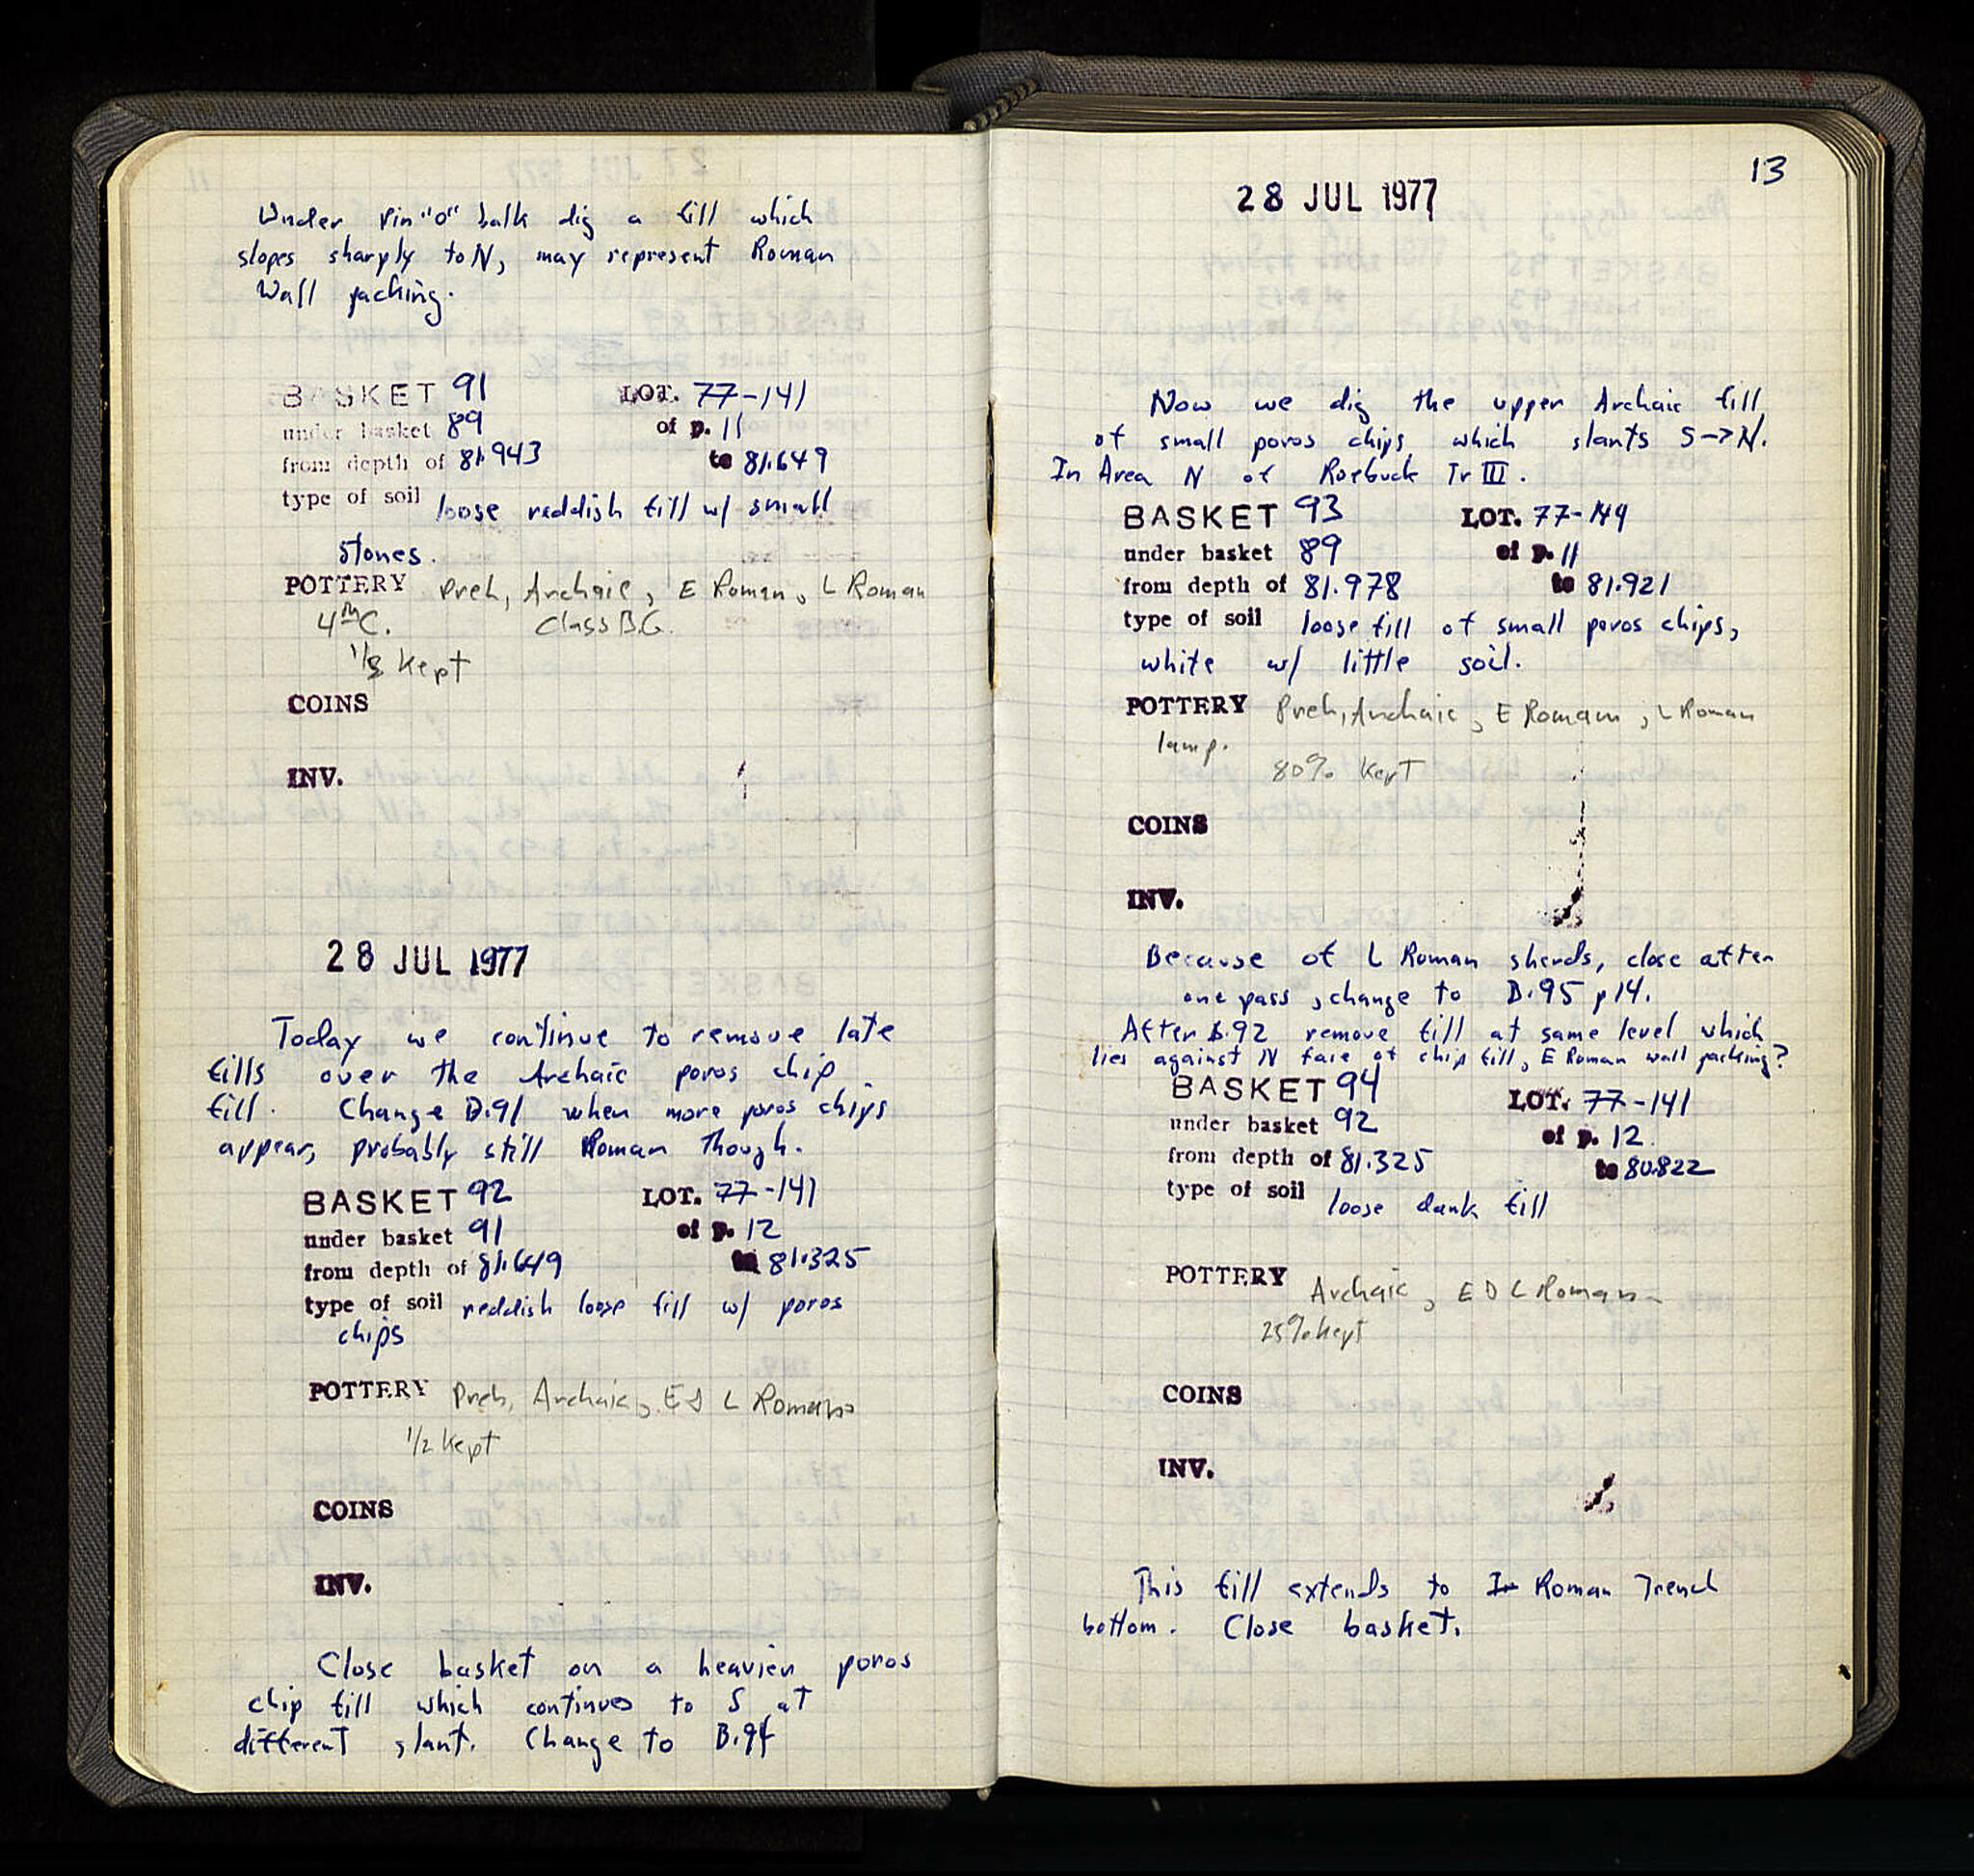 Under Pin "0" balk dig a fill which
slopes sharply to N, may represent Roman
Wall packing.
BASKET 91 LOT. 77-141
under basket 89 of p. 11
from depth of 81.943 to 81.649
type of soil loose reddish fill w/ small
stones.
POTTERY Preh, Archaic, E Roman, L Roman
4th C. Class B.G.
kept
COINS
INV.
28 JUL 1977
Today we continue to remove late
fills over the Archaic poros chip
fill. Change B.91 when more poros chips
appear, probably still Roman though.
BASKET 92 LOT. 77-141
under basket 91 of p. 12
from depth of 81.649 to 81.325
type of soil reddish loose fill w/ poros
chips
POTTERY Preh, Archaic, E & L Roman
1/2 kept
COINS
INV.
Close basket on a heavier poros
chip fill which continues to S at
different slant. Change to B.94
13
28 JUL 1977
Now we dig the upper Archaic fill
of small poros chips which slants S->N.
In Area N of Roebuck Tr III.
BASKET 93 LOT. 77-144
under basket 89 of p. 11
from depth of 81.978 to 81.921
type of soil loose fill of small poros chips,
white w/ little soil.
POTTERY Preh, Archaic, E Roman, L Roman
lamp.
80% kept
COINS
INV.
Because of L Roman sherds, close after
one pass, change to B.95 p14.
After B.92 remove fill at same level which
lies against N face of chip fill, E Roman wall packing?
BASKET 94 LOT. 77-141
under basket 92 of p. 12
from depth of 81.325 to 80.822
type of soil loose dark fill
POTTERY Archaic, E & L Roman
25% kept
COINS
INV.
This fill extends to Roman Trench
bottom. Close basket.